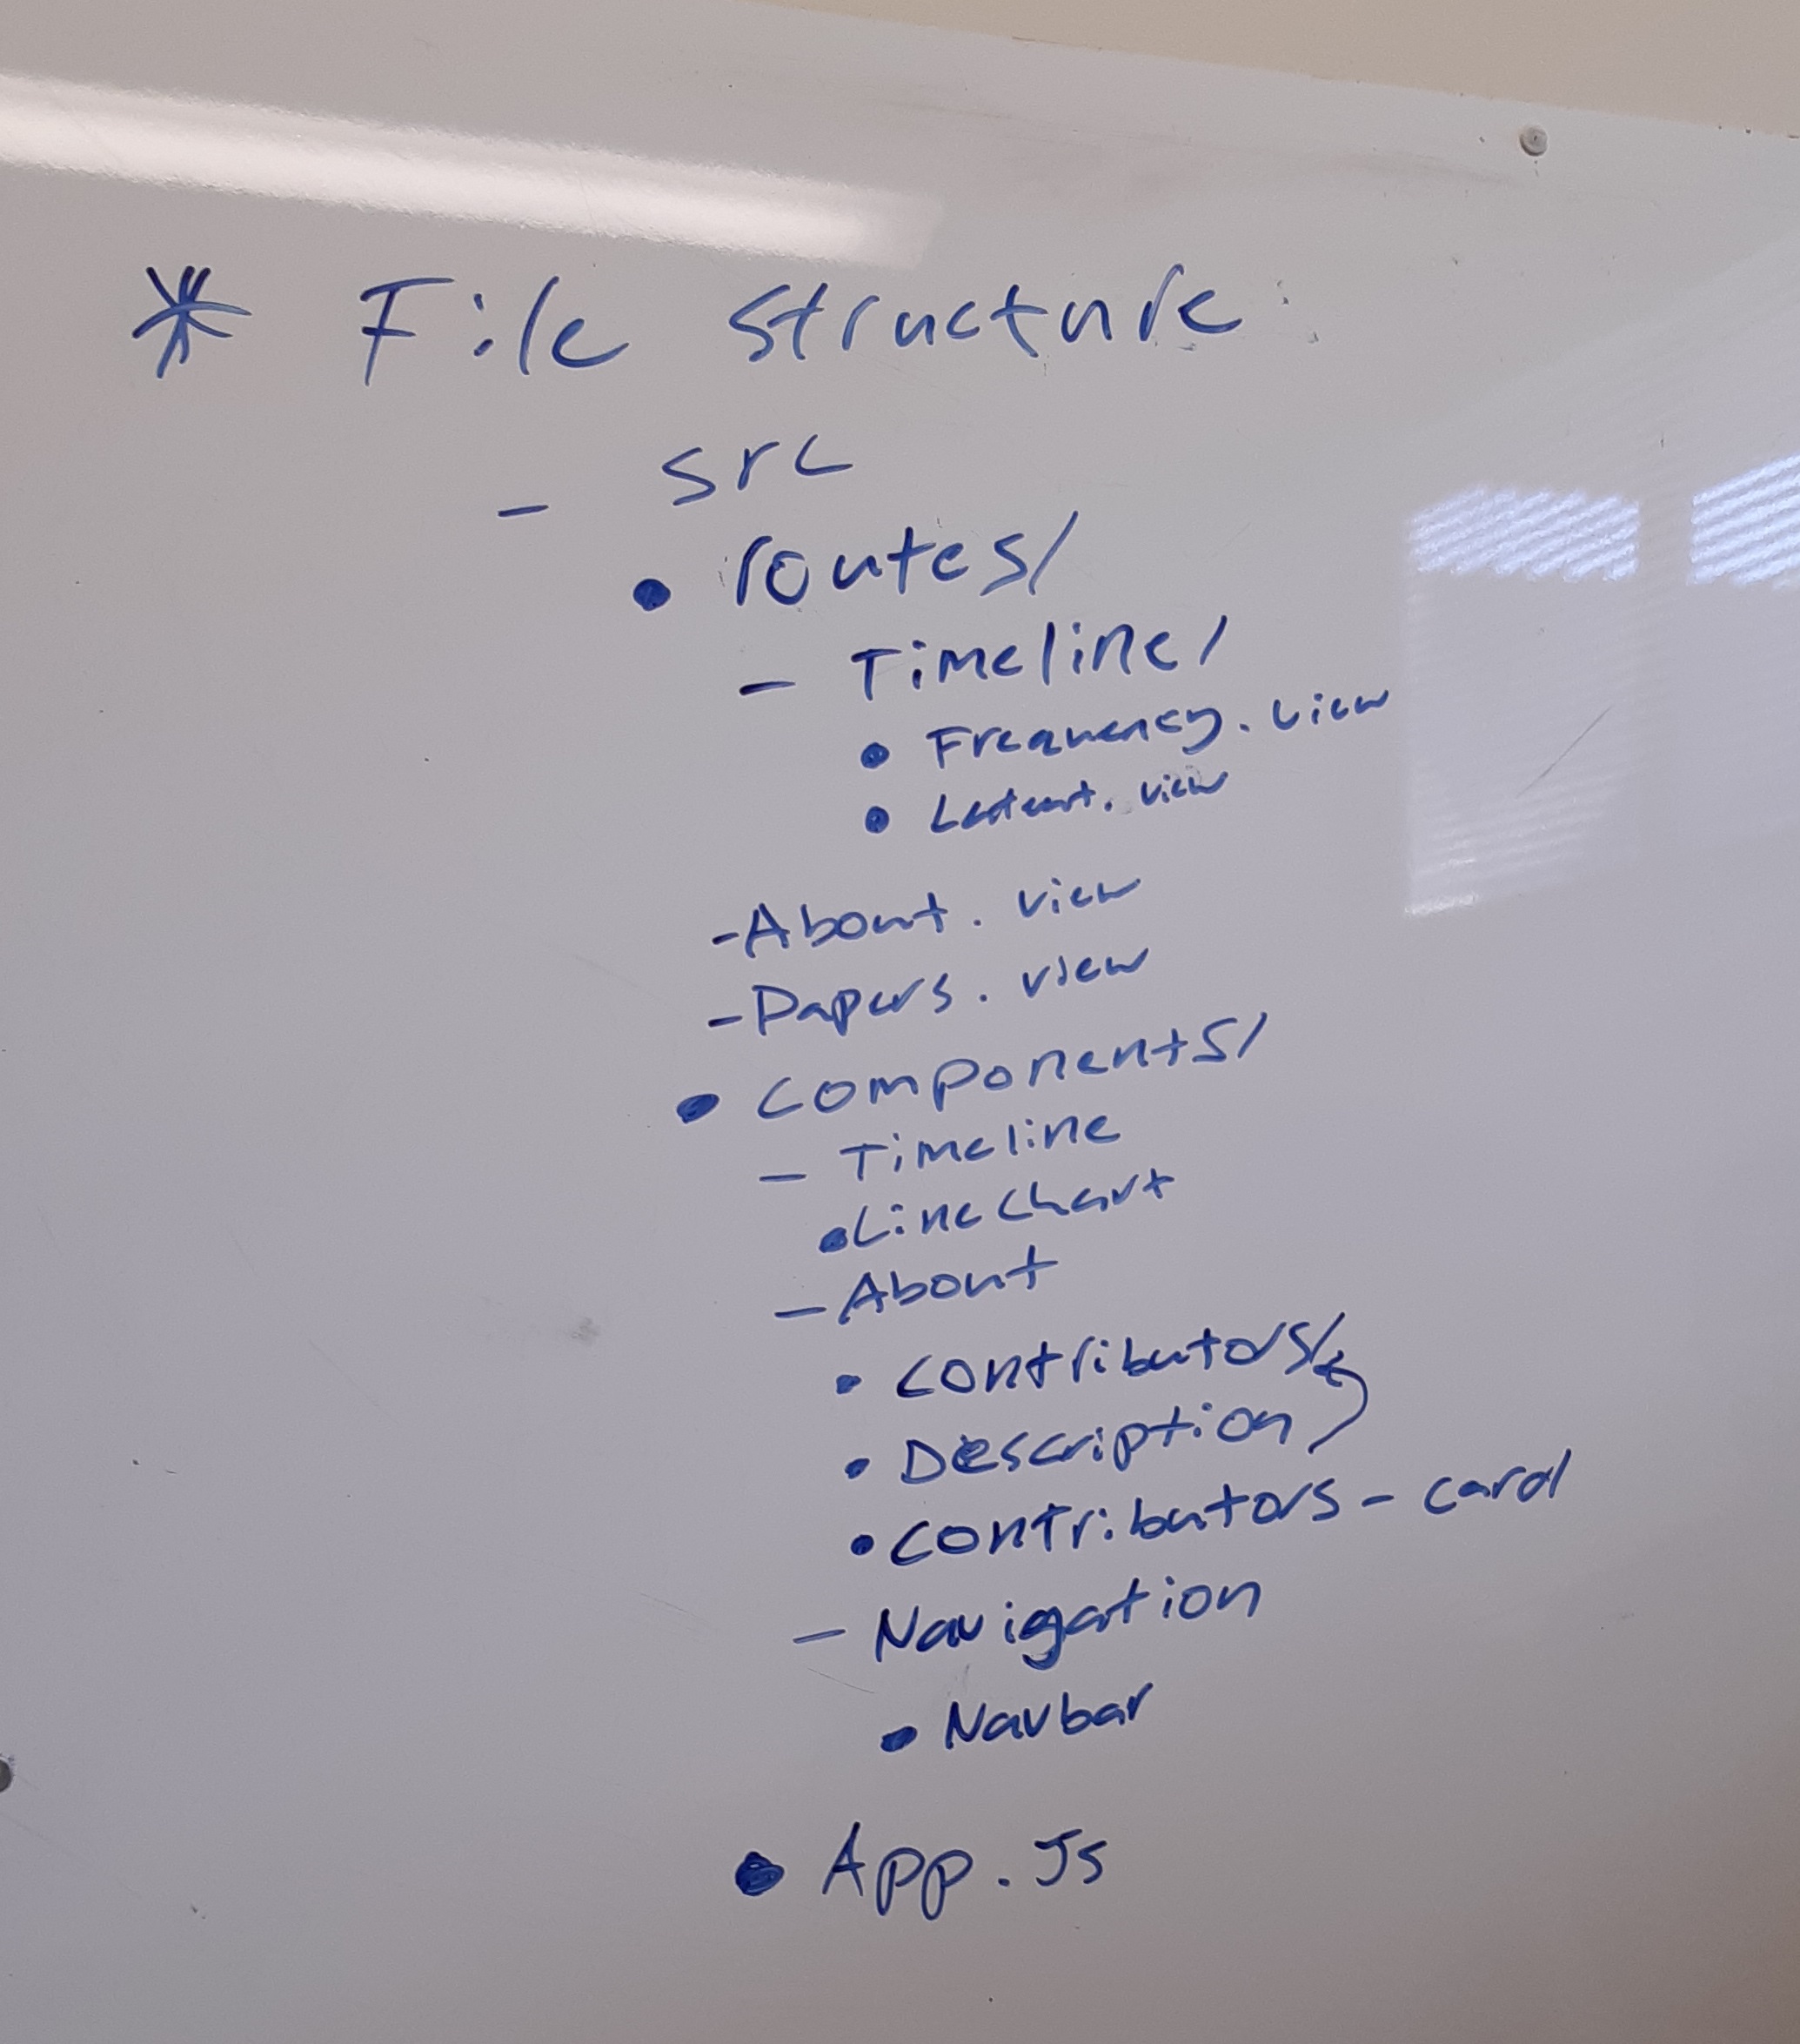 * File structure:
- src
• routes/
- Timeline/
• Frequency.view
• .view
- About.view
- Papers.view
• components/
- Timeline
• Linechart
- About
• contributors/
• Description
• contributors-card
- Navigation
• Navbar
• App.Js